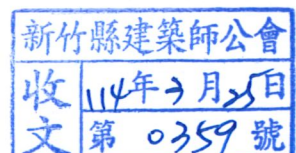 新竹縣建築師公會
收文
114年3月25日
第0359號